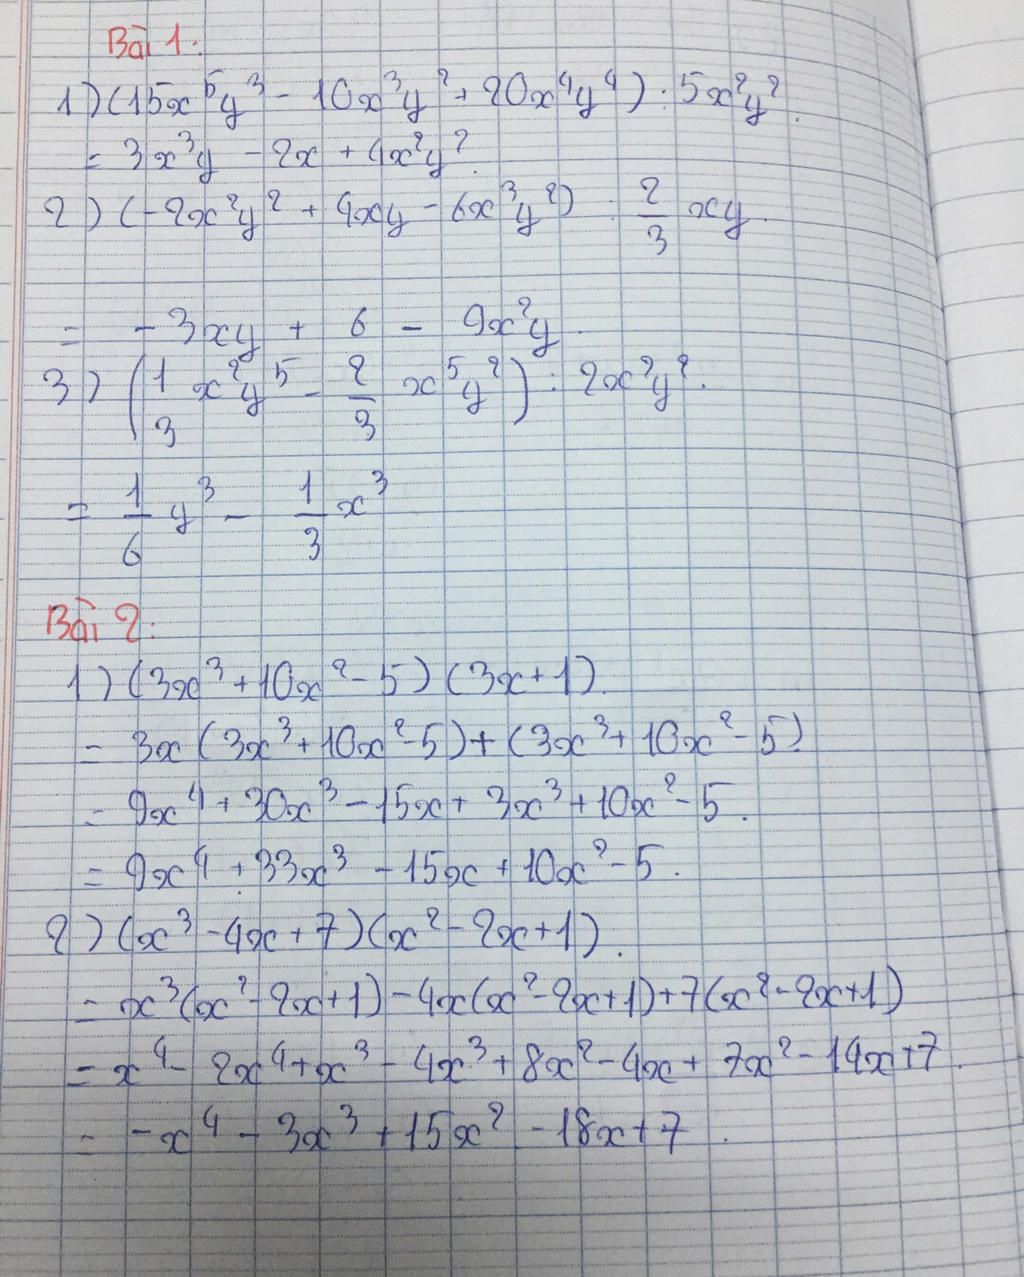 Bài 1:
1) (15x⁵y³ - 10x³y² + 20x⁴y⁴) : 5x²y².
= 3x³y - 2x + 4x²y².
2) (-2x²y² + 4xy - 6x³y²) : 2/3 xy.
= -3xy + 6 - 9x²y.
3) (1/3 x²y⁵ - 2/3 x⁵y²) : 2x²y².
= 1/6 y³ - 1/3 x³
Bài 2:
1) (3x³ + 10x² - 5) (3x + 1).
= 3x (3x³ + 10x² - 5) + (3x³ + 10x² - 5)
= 9x⁴ + 30x³ - 15x + 3x³ + 10x² - 5.
= 9x⁴ + 33x³ - 15x + 10x² - 5.
2) (x³ - 4x + 7)(x² - 2x + 1).
= x³(x² - 2x + 1) - 4x(x² - 2x + 1) + 7(x² - 2x + 1)
= x⁴ - 2x⁴ + x³ - 4x³ + 8x² - 4x + 7x² - 14x + 7.
= -x⁴ - 3x³ + 15x² - 18x + 7.